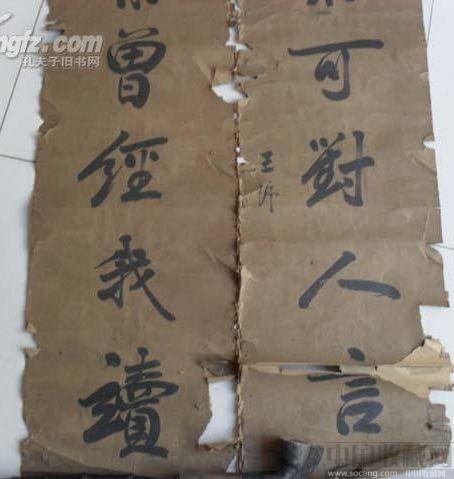 可對人言
王
曾經我讀
ngfz.com
孔夫子旧书网
中国收藏网
www.socang.com 中国收藏网